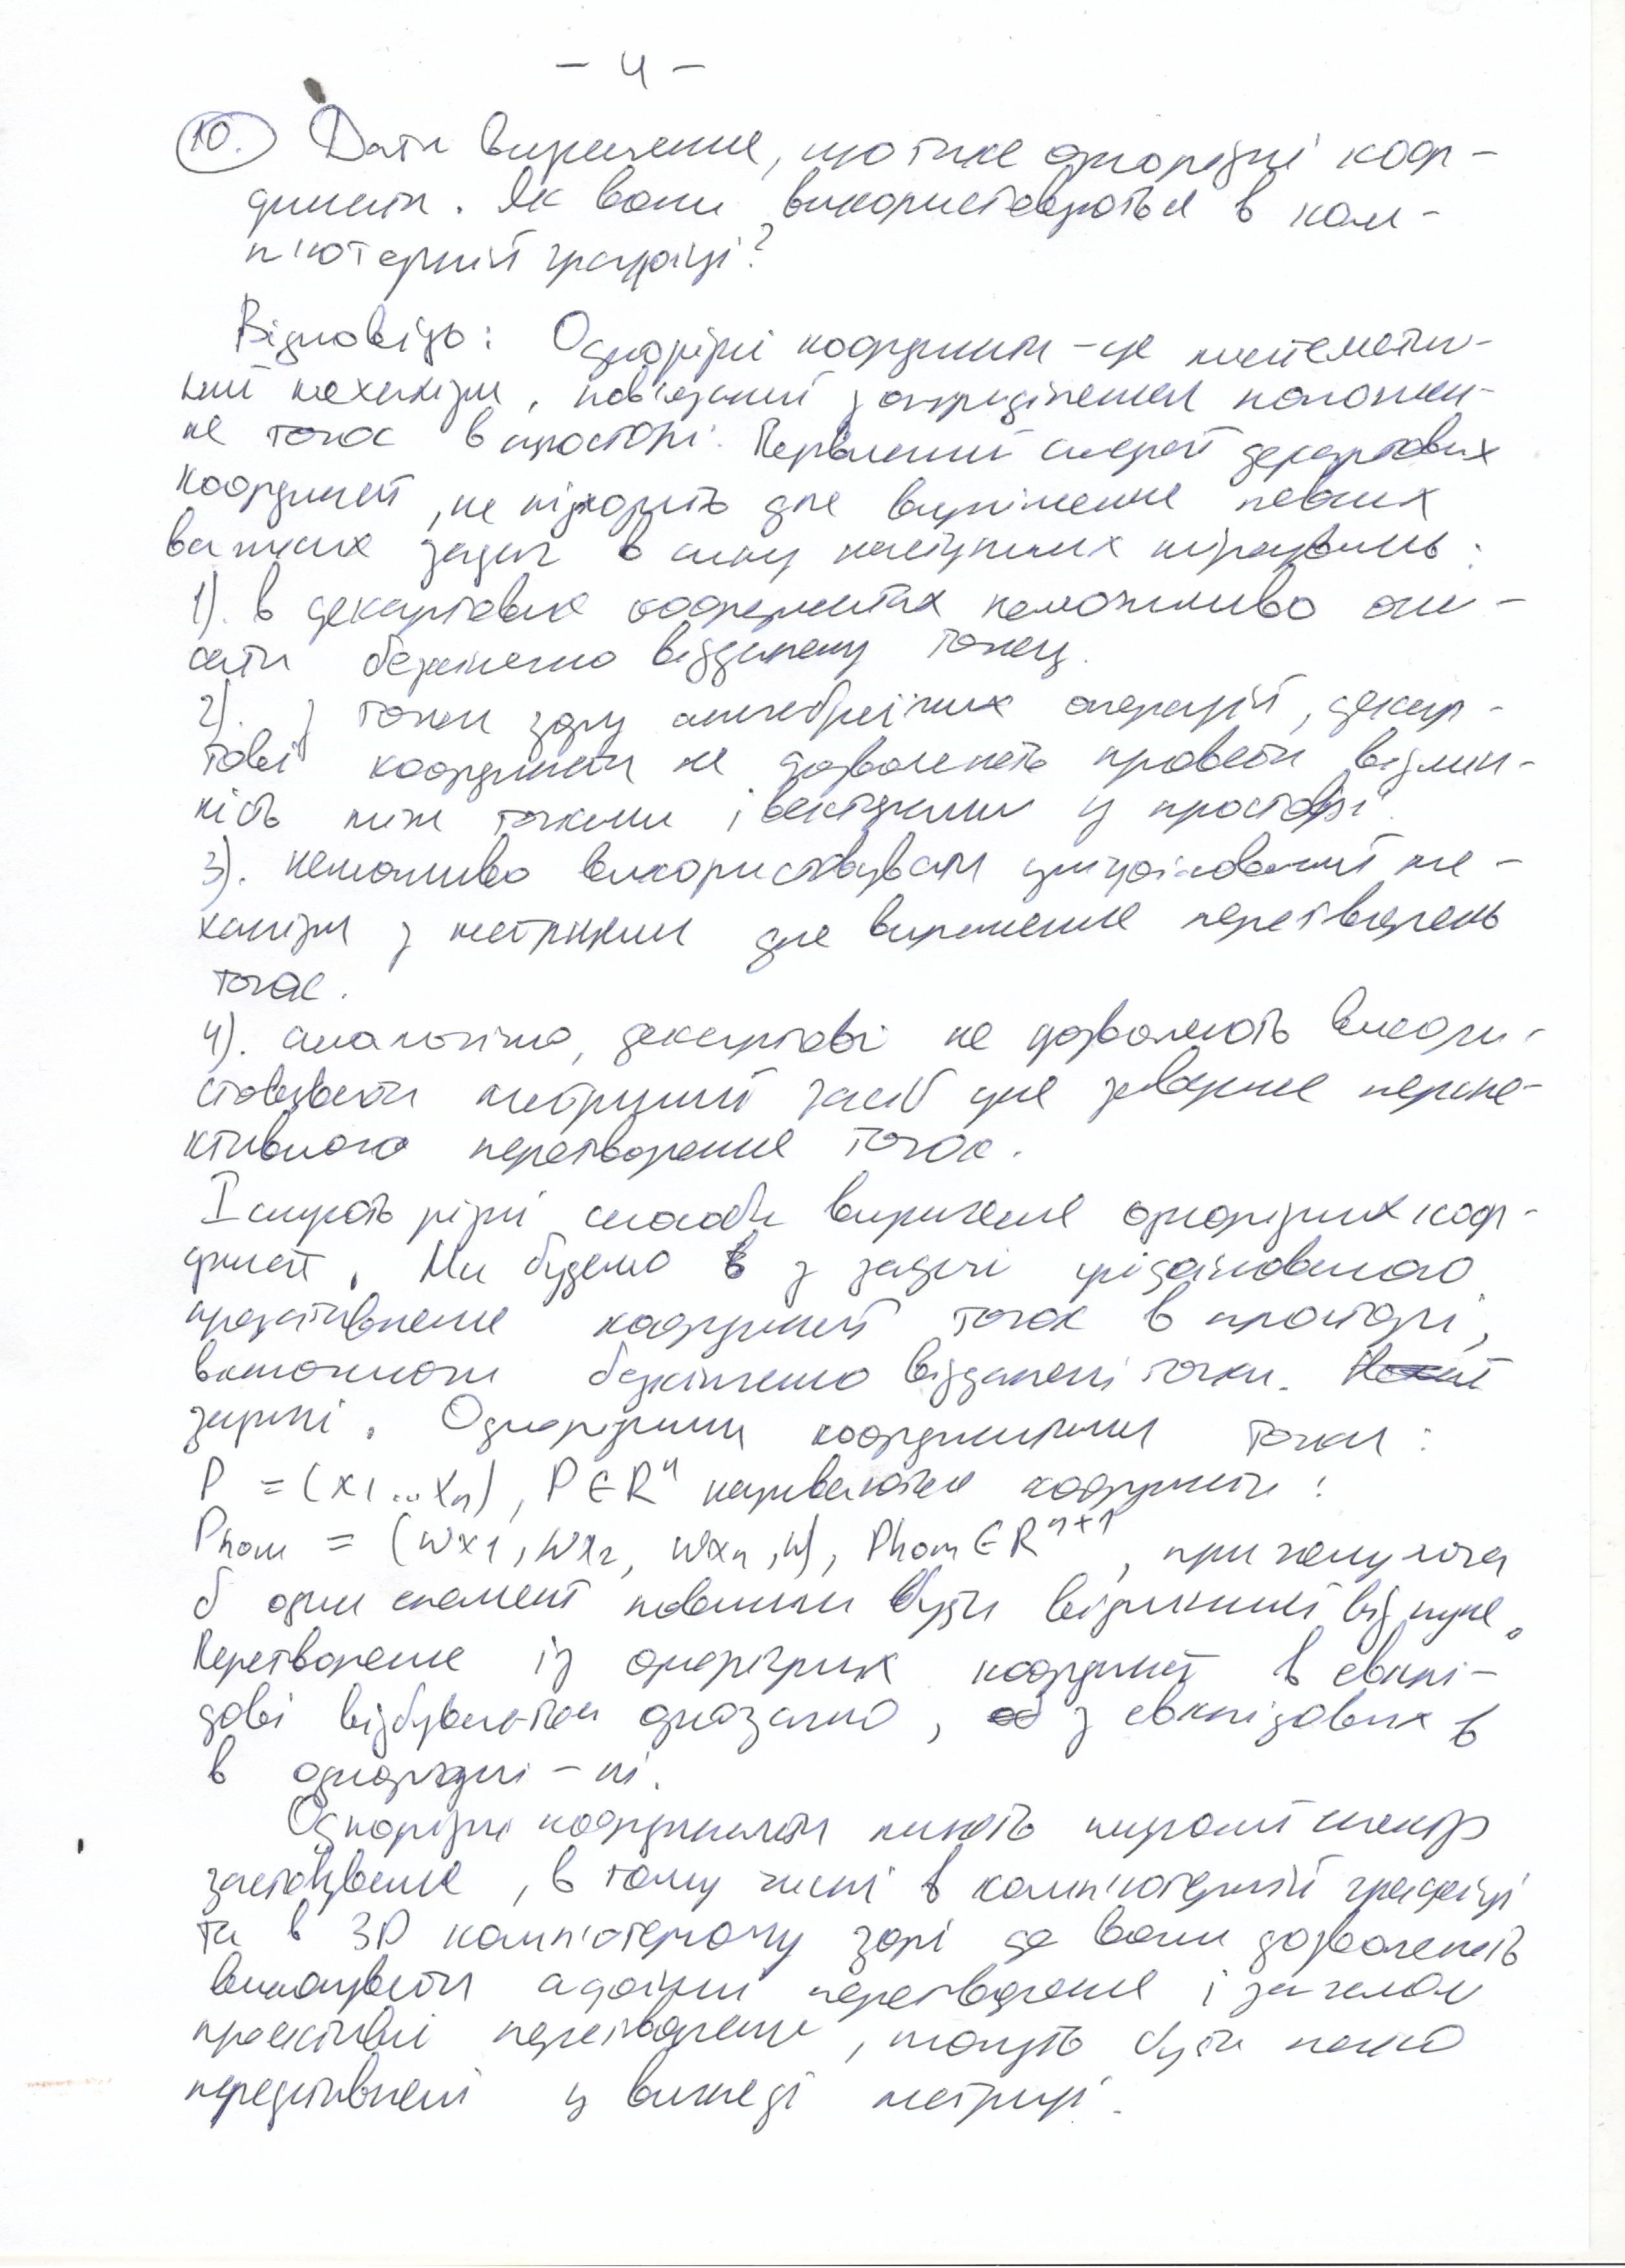 - 4 -
10. Дати визначення, що таке однорідні коор-
динати. Як вони використовуються в ком-
п'ютерній графіці?
Відповідь: Однорідні координати - це математич-
ний механізм, пов'язаний з визначенням положен-
ня точок в просторі. Звичний декартових
координат, не підходить для вирішення певних
важливих задач в силу наступних міркувань:
1). в декартових координатах неможливо опи-
сати безкінечно віддалену точку.
2). з точки зору алгебраїчних операцій, декар-
тові координати не дозволяють провести відмін-
ність між точками і векторами у просторі.
3). неможливо використовувати уніфікований ме-
ханізм з матрицями для вираження перетворень
точок.
4). аналогічно, декартові не дозволяють викори-
стовувати матричний засіб для перспе-
ктивного перетворення точок.
Існують різні способи вираження однорідних коор-
динат. Ми будемо в з задачі уніфікованого
представлення координат точок в просторі,
включаючи безкінечно віддалені точки.
Однорідними координатами точки:
P = (x1...xn), P ∈ R^n називаються координати:
Phom = (wx1, wx2, wxn, w), Phom ∈ R^n+1, при чому хоча
б один елемент повинен бути відмінний від нуля.
Перетворення із однорідних координат в евклі-
дові відбувається однозначно, з евклідових в
в однорідні - ні.
Однорідні координати мають широкий спектр
застосування, в тому числі в комп'ютерній графіці
та в 3D комп'ютерному зорі де вони дозволяють
виконувати афінні перетворення і загалом
проективні перетворення, можуть бути легко
представлені у вигляді матриці.